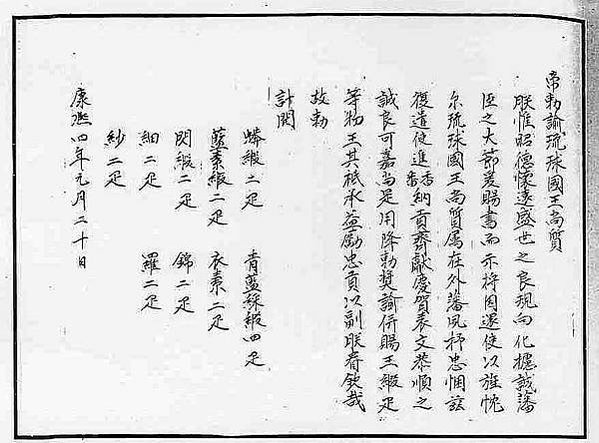 帝勅諭琉球國王尚質
朕惟昭德懷遠盛世之良規向化攄誠藩
臣之大節爰賜書而示將因還使以旌忱
尔琉球國王尚質属在外藩夙抒忠悃茲
復遣使進香納貢齎獻慶賀表文恭順之
誠良可嘉尚是用降勅奬諭併賜王緞疋
等物王其祗承益勵忠貢以副朕眷欽哉
故勅
計開
蟒緞二疋 青藍綵緞四疋
藍素緞二疋 衣素二疋
閃緞二疋 錦二疋
紬二疋 羅二疋
紗二疋
康熙四年元月二十日